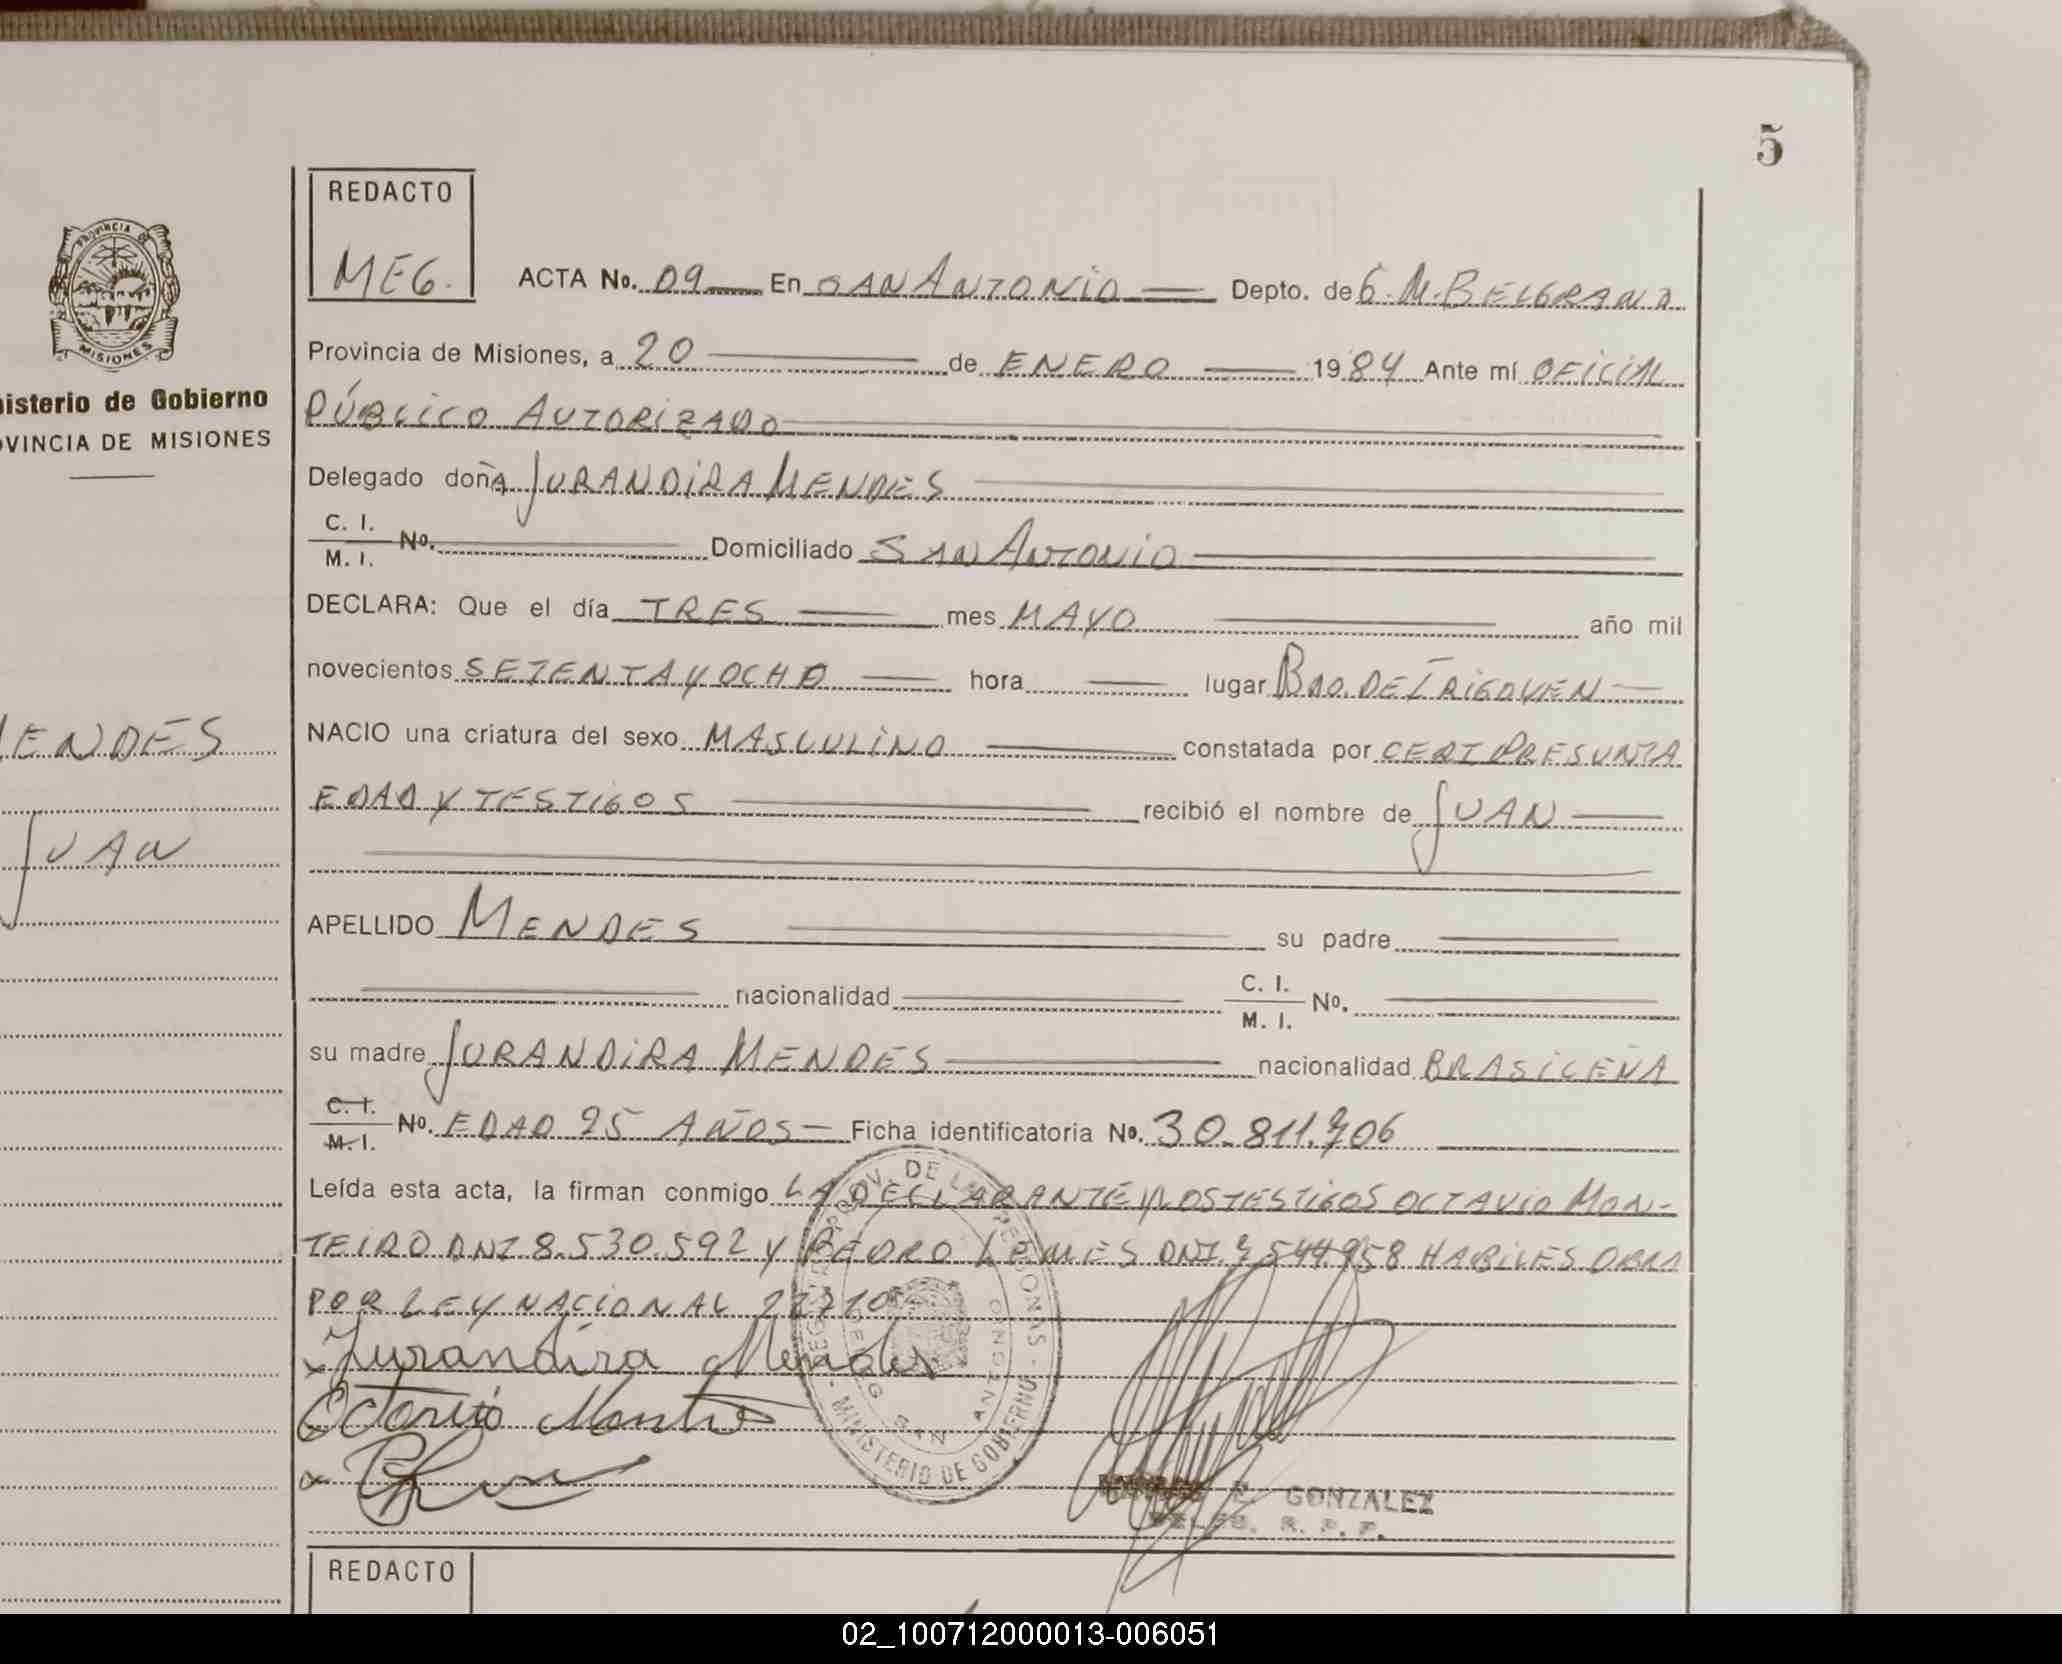 5
REDACTO
MEG.
ACTA No. 09 En SAN ANTONIO Depto. de G. M. BELGRANO
Provincia de Misiones, a 20 de ENERO 1984 Ante mí OFICIAL
PÚBLICO AUTORIZADO
Delegado doñA JURANDIRA MENDES
C. I.
M. I. No. Domiciliado SAN ANTONIO
DECLARA: Que el día TRES mes MAYO año mil
novecientos SETENTA Y OCHO hora lugar BDO. DE IRIGOYEN
NACIO una criatura del sexo MASCULINO constatada por CERT PRESUNTA
EDAD Y TESTIGOS recibió el nombre de JUAN
APELLIDO MENDES su padre
nacionalidad C. I.
M. I. No.
su madre JURANDIRA MENDES nacionalidad BRASILEÑA
C. I.
M. I. No. EDAD 25 AÑOS Ficha identificatoria No. 30.811.706
Leída esta acta, la firman conmigo LA DECLARANTE Y LOS TESTIGOS OCTAVIO MON-
TEIRO DNI 8.530.592 Y PEDRO LEMES DNI 7.544.958 HABILES OBRA
POR LEY NACIONAL
Jurandira Mendes
Octavio
E. GONZALEZ
DELEG. R. P. P.
REG. PROV. DE LAS PERSONAS - MINISTERIO DE GOBIERNO -
DELEG SAN ANTONIO
REDACTO
PROVINCIA DE
MISIONES
nisterio de Gobierno
OVINCIA DE MISIONES
MENDES
JUAN
02_100712000013-006051